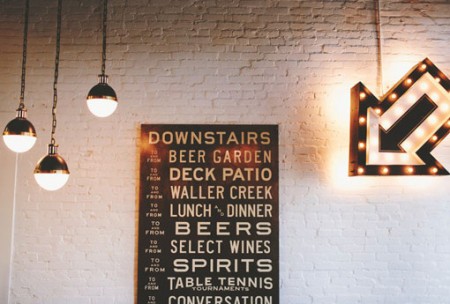 DOWNSTAIRS
TO AND FROM BEER GARDEN
TO AND FROM DECK PATIO
TO AND FROM WALLER CREEK
TO AND FROM LUNCH AND DINNER
TO AND FROM BEERS
TO AND FROM SELECT WINES
TO AND FROM SPIRITS
TO AND FROM TABLE TENNIS
TOURNAMENTS
CONVERSATION